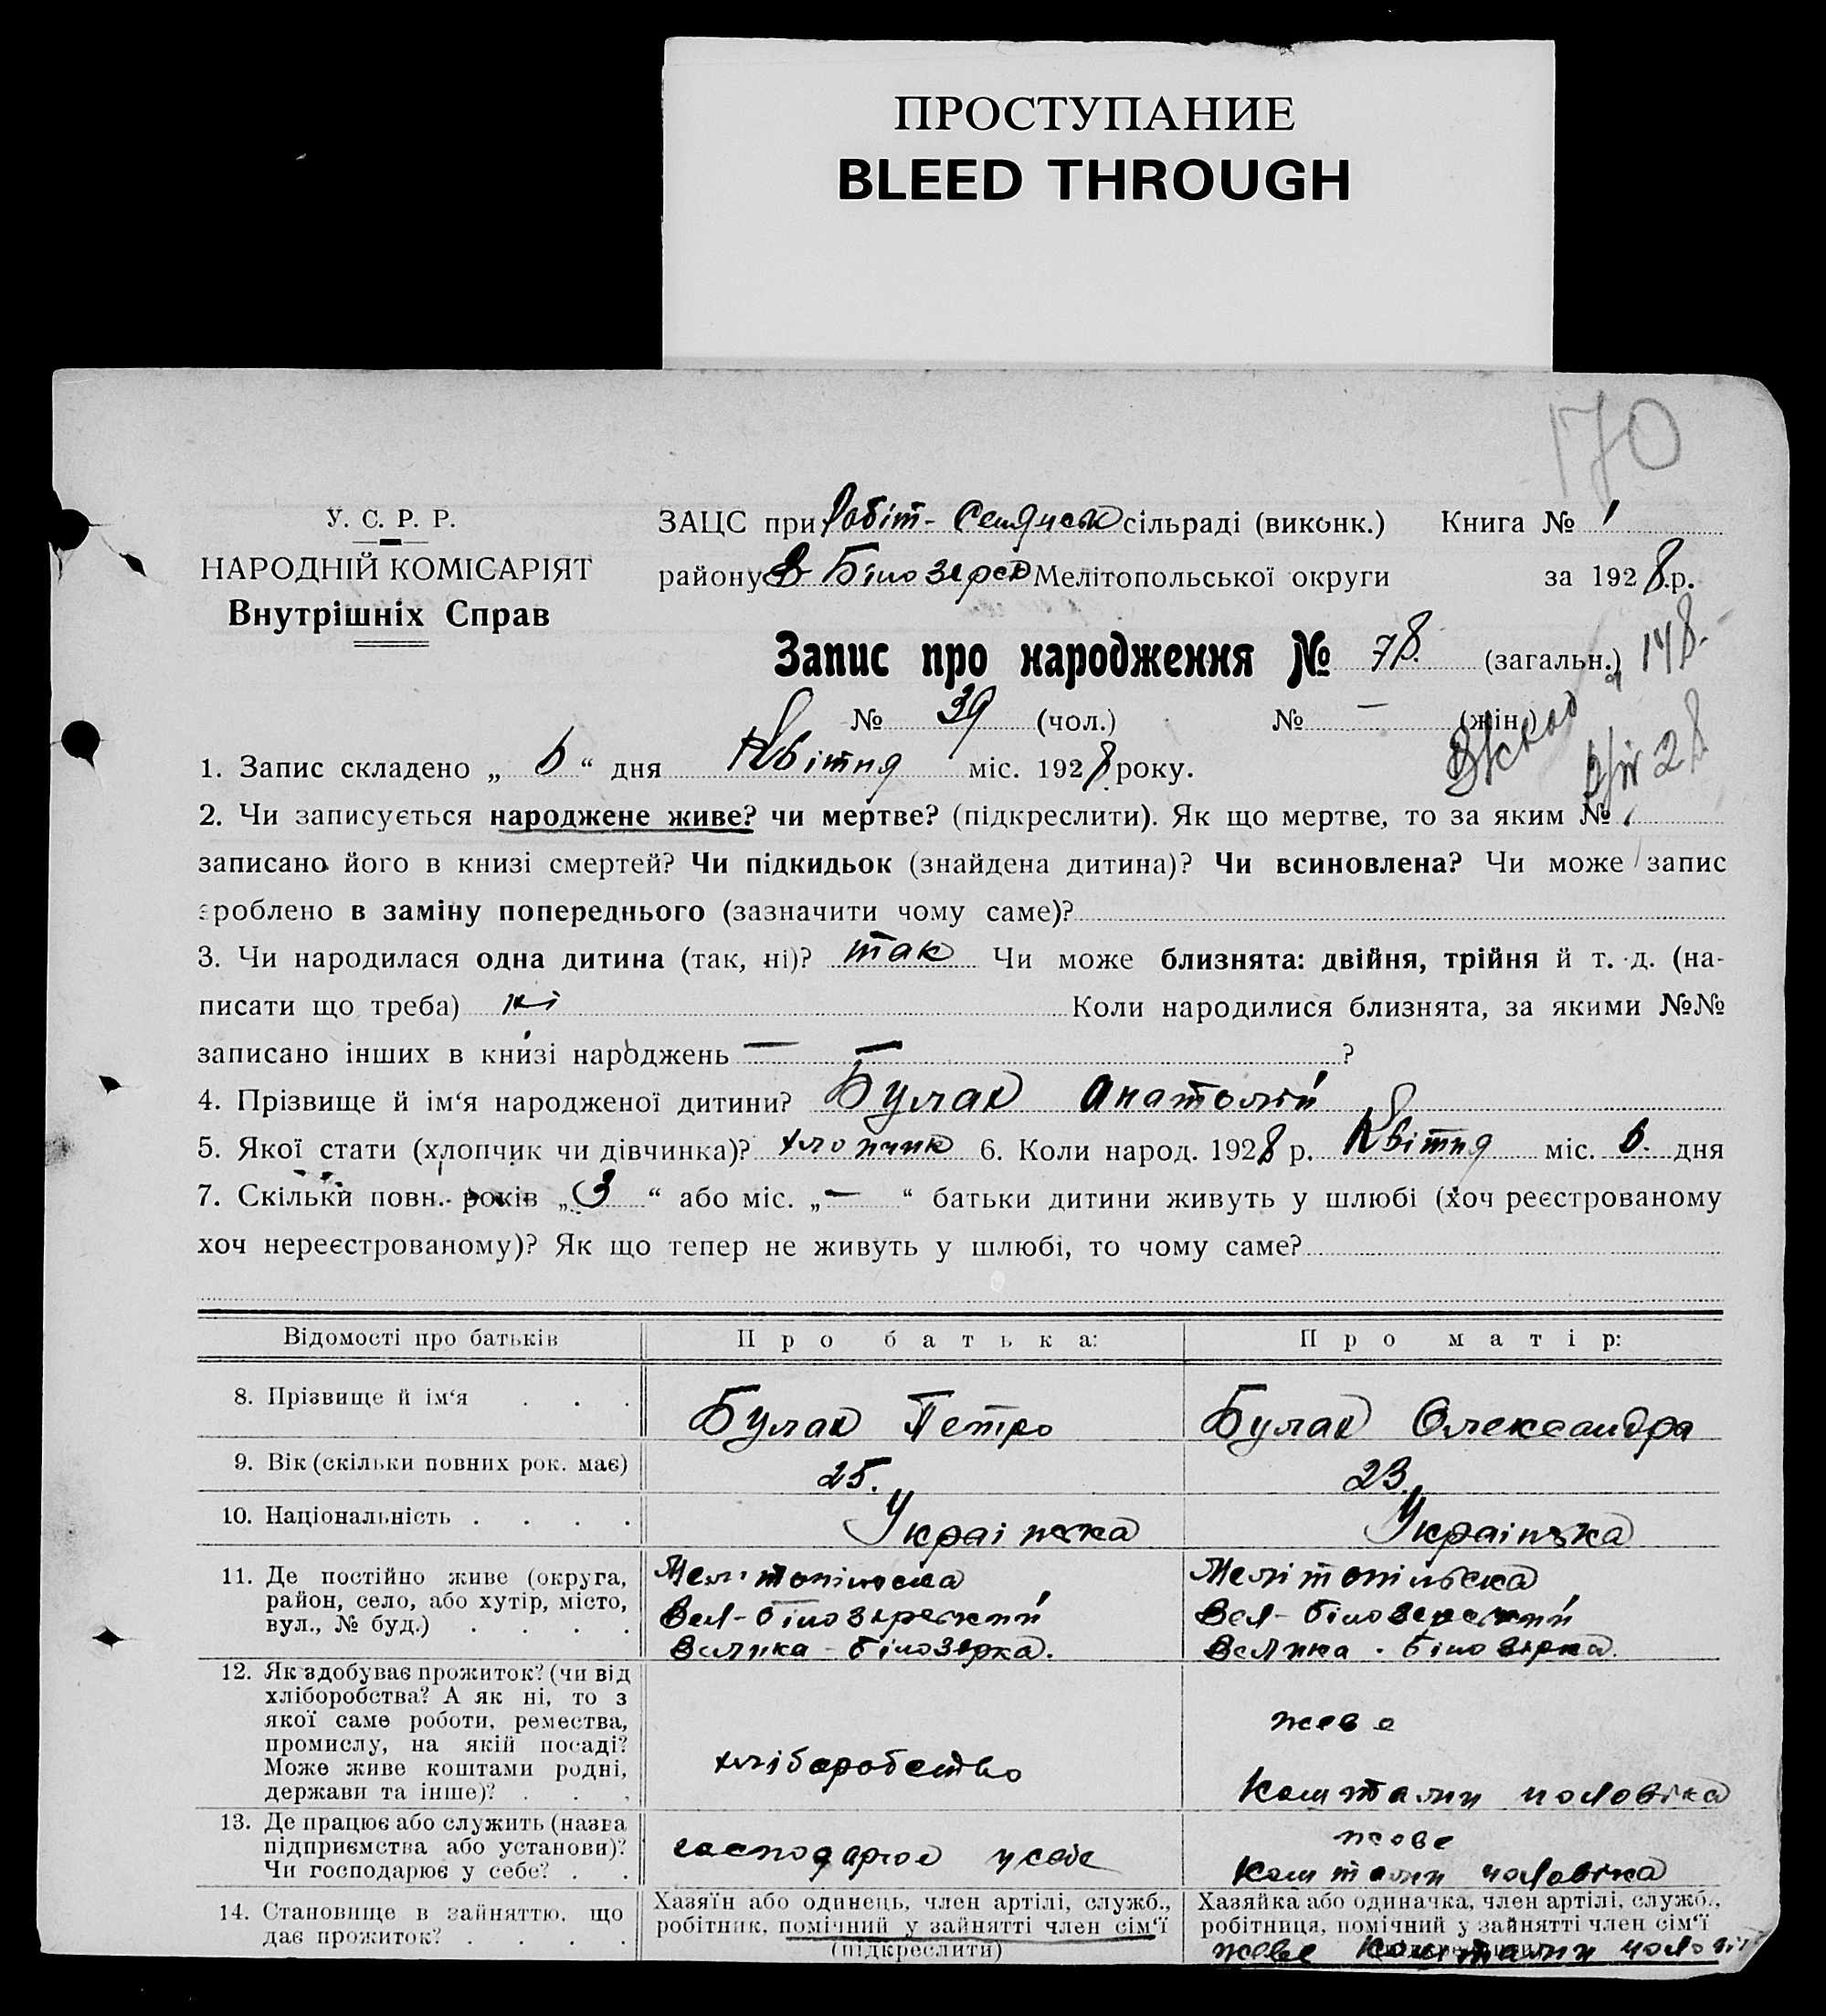 ПРОСТУПАНИЕ
BLEED THROUGH
170
У. С. Р. Р.
НАРОДНІЙ КОМІСАРІЯТ
Внутрішніх Справ
ЗАЦС при Робіт- сільраді (виконк.) Книга № 1
району В Білозерск Мелітопольської округи за 1928 р.
Запис про народження № 78. (загальн.) 148.
№ 39 (чол.) № — (жін.)
1. Запис складено „ 6 “ дня Квітня міс. 1928 року.
2. Чи записується народжене живе? чи мертве? (підкреслити). Як що мертве, то за яким №
записано його в книзі смертей? Чи підкидьок (знайдена дитина)? Чи всиновлена? Чи може запис
зроблено в заміну попереднього (зазначити чому саме)?
3. Чи народилася одна дитина (так, ні)? так Чи може близнята: двійня, трійня й т. д. (на-
писати що треба) ні Коли народилися близнята, за якими №№
записано інших в книзі народжень — — ?
4. Прізвище й ім‘я народженої дитини? Булах Анатолій
5. Якої стати (хлопчик чи дівчинка)? хлопчик 6. Коли народ. 1928 р. Квітня міс. 6. дня
7. Скільки повн. років „ 3 “ або міс. „ — “ батьки дитини живуть у шлюбі (хоч реєстрованому
хоч нереєстрованому)? Як що тепер не живуть у шлюбі, то чому саме?
Відомості про батьків Про батька: Про матір:
8. Прізвище й ім‘я . . . Булах Петро Булах Олександра
9. Вік (скільки повних рок. має) 25. 23.
10. Національність . . . . Українска Українзка
11. Де постійно живе (округа, Мелітопільска Мелітопільска
район, село, або хутір, місто, Вел-білозерский Вел-білозерский
вул., № буд.) . . . . Велика-білозерка. Велика-білозерка.
12. Як здобуває прожиток? (чи від
хліборобства? А як ні, то з
якої саме роботи, ремества, живе
промислу, на якій посаді?
Може живе коштами родні, хліборобство
держави та інше)? . . . коштами чоловіка
13. Де працює або служить (назва живе
підприємства або установи)? господарює усебе
Чи господарює у себе? . . коштами чоловіка
14. Становище в зайняттю, що Хазяїн або одинець, член артілі, служб., Хазяйка або одиначка, член артілі, служб.,
дає прожиток? . . . . робітник, помічний у зайнятті член сім‘ї робітниця, помічний у зайнятті член сім‘ї
(підкреслити) живе коштами